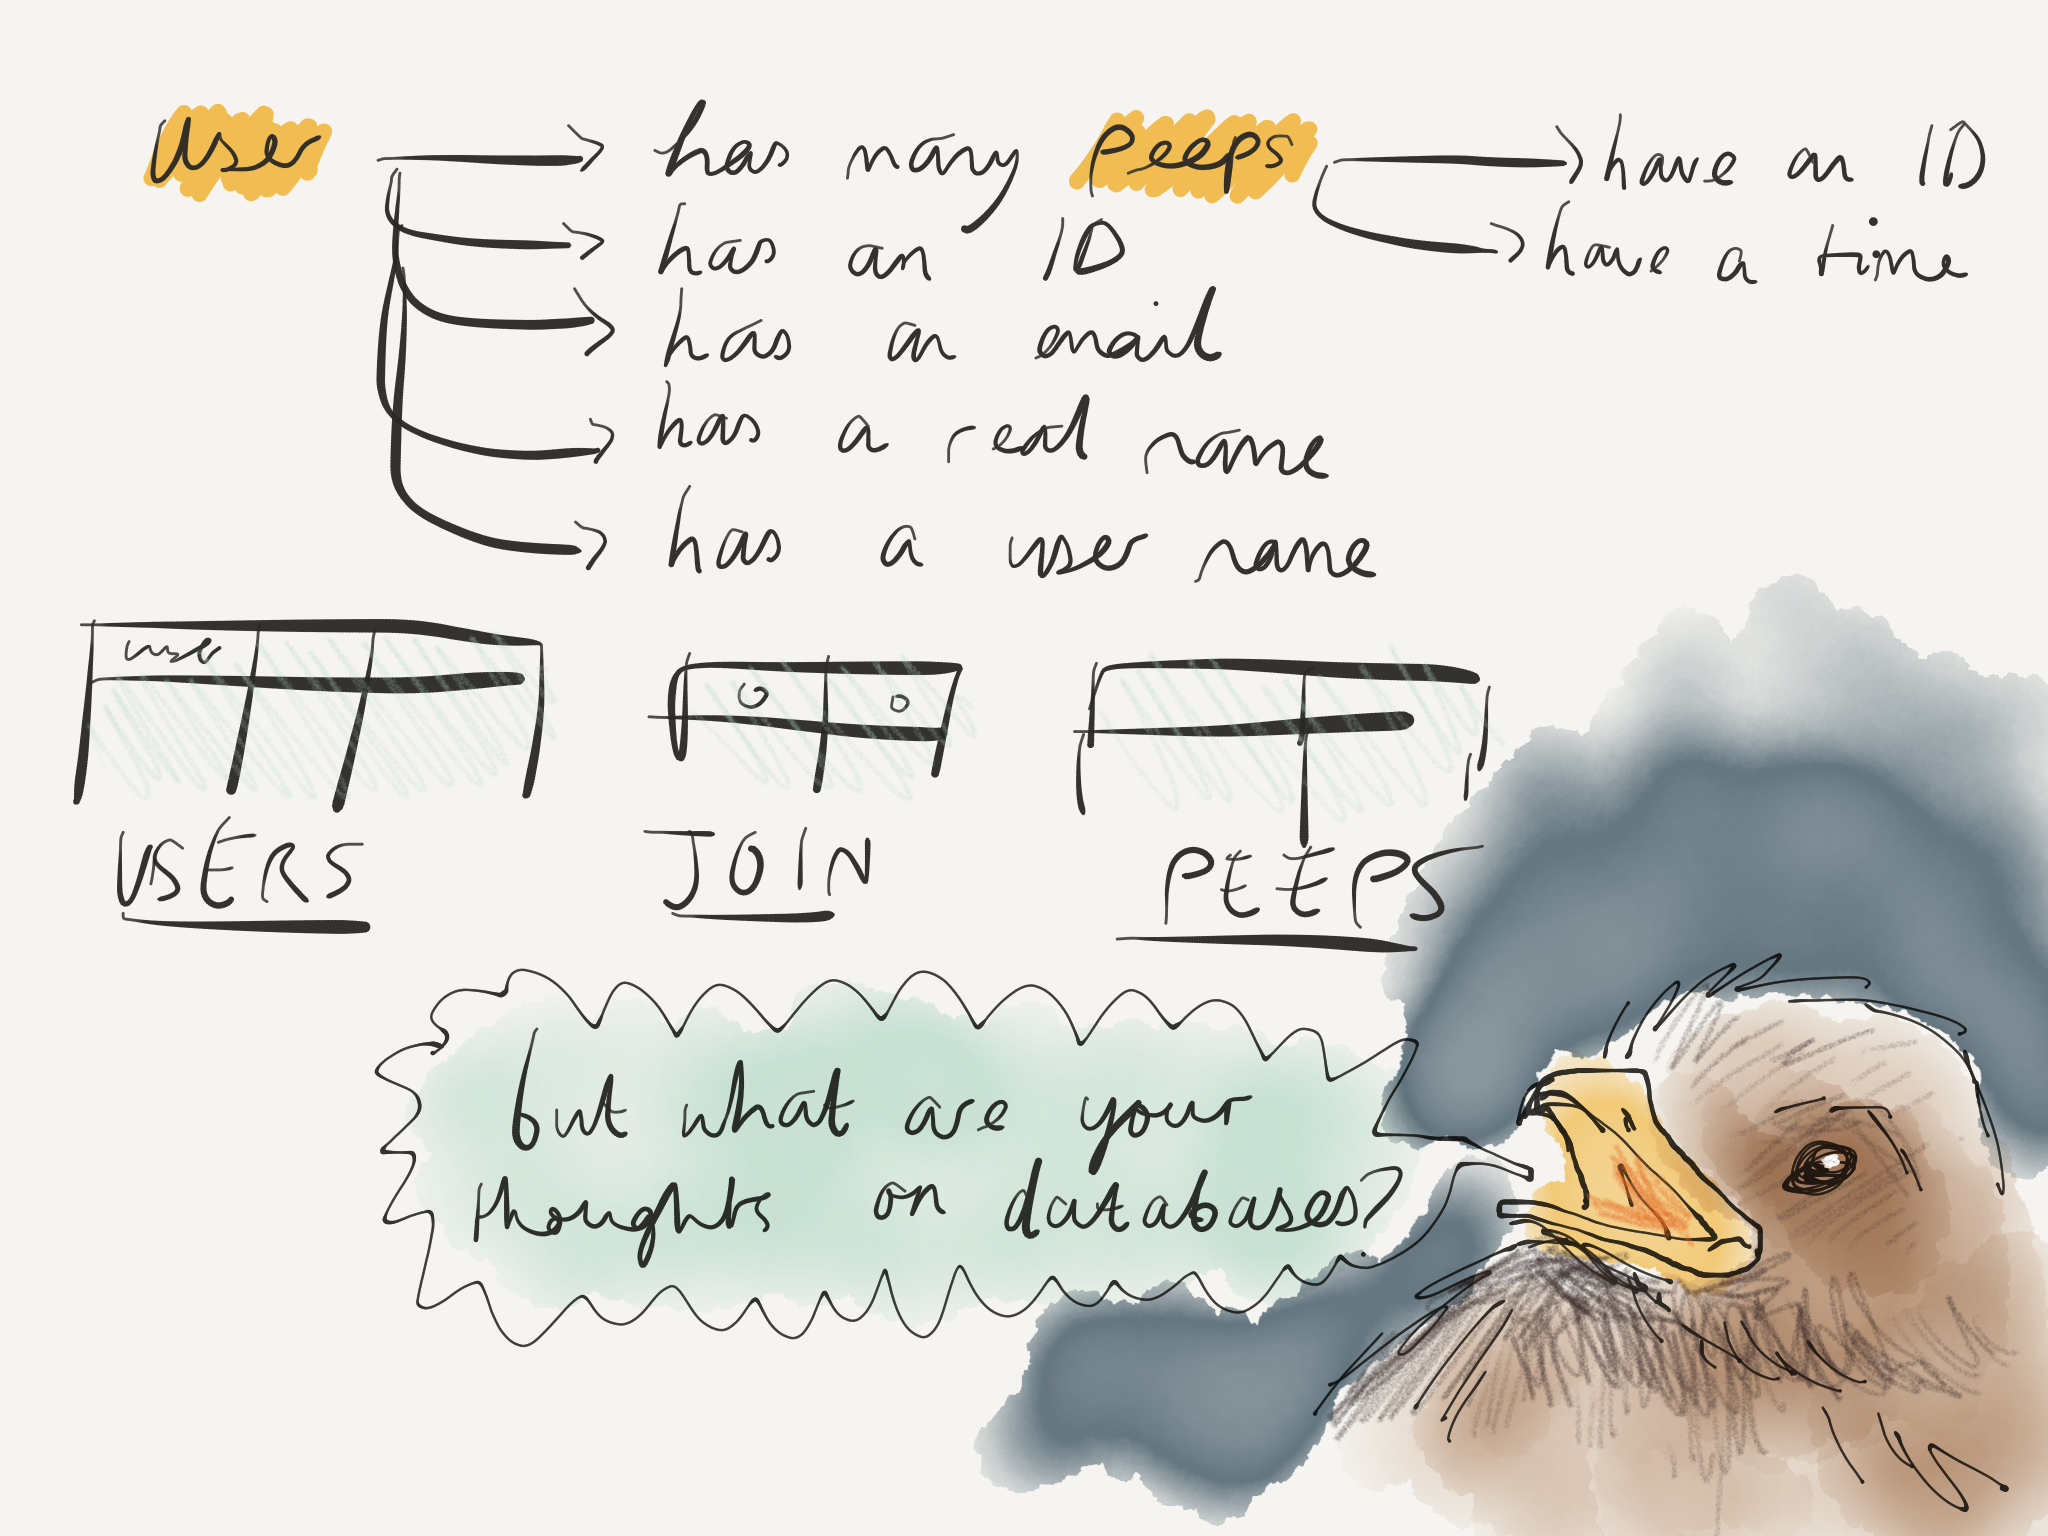 User has many peeps have an ID
has an ID have a time
has an email
has a real name
has a user name
user
USERS JOIN PEEPS
but what are your
thoughts on databases?